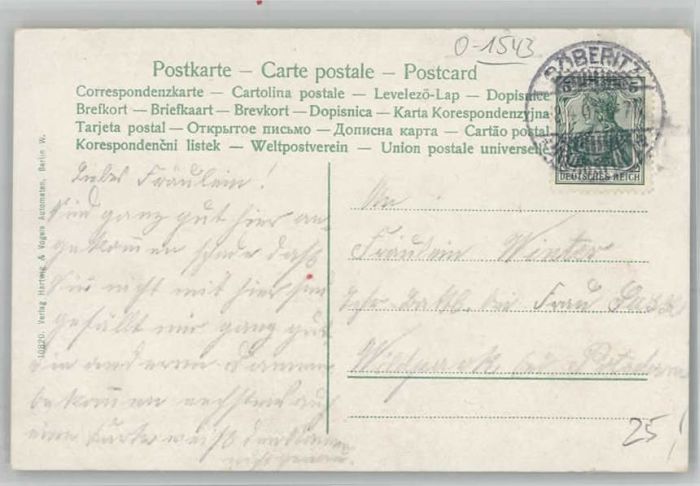 0-1543
DÖBERITZ
Postkarte – Carte postale – Postcard
Correspondenzkarte – Cartolina postale – Levelező-Lap – Dopisnice
Brefkort – Briefkaart – Brevkort – Dopisnica – Karta Korespondenzyjna
Tarjeta postal – Открытое письмо – Дописна карта – Cartão postal
Korespondenčni listek – Weltpostverein – Union postale universelle
DEUTSCHES REICH
10820. Verlag Hartwig & Vogels Automaten, Berlin W.
Liebes Fräulein!
Sind ganz gut hier an-
gekommen schade daß
Sie nicht mit hier sind
gefällt mir ganz gut
die anderen Damen
bekommen auch
eine Karte weiß
An
Fräulein Winter
Frau
Wildpark bei Potsdam
25